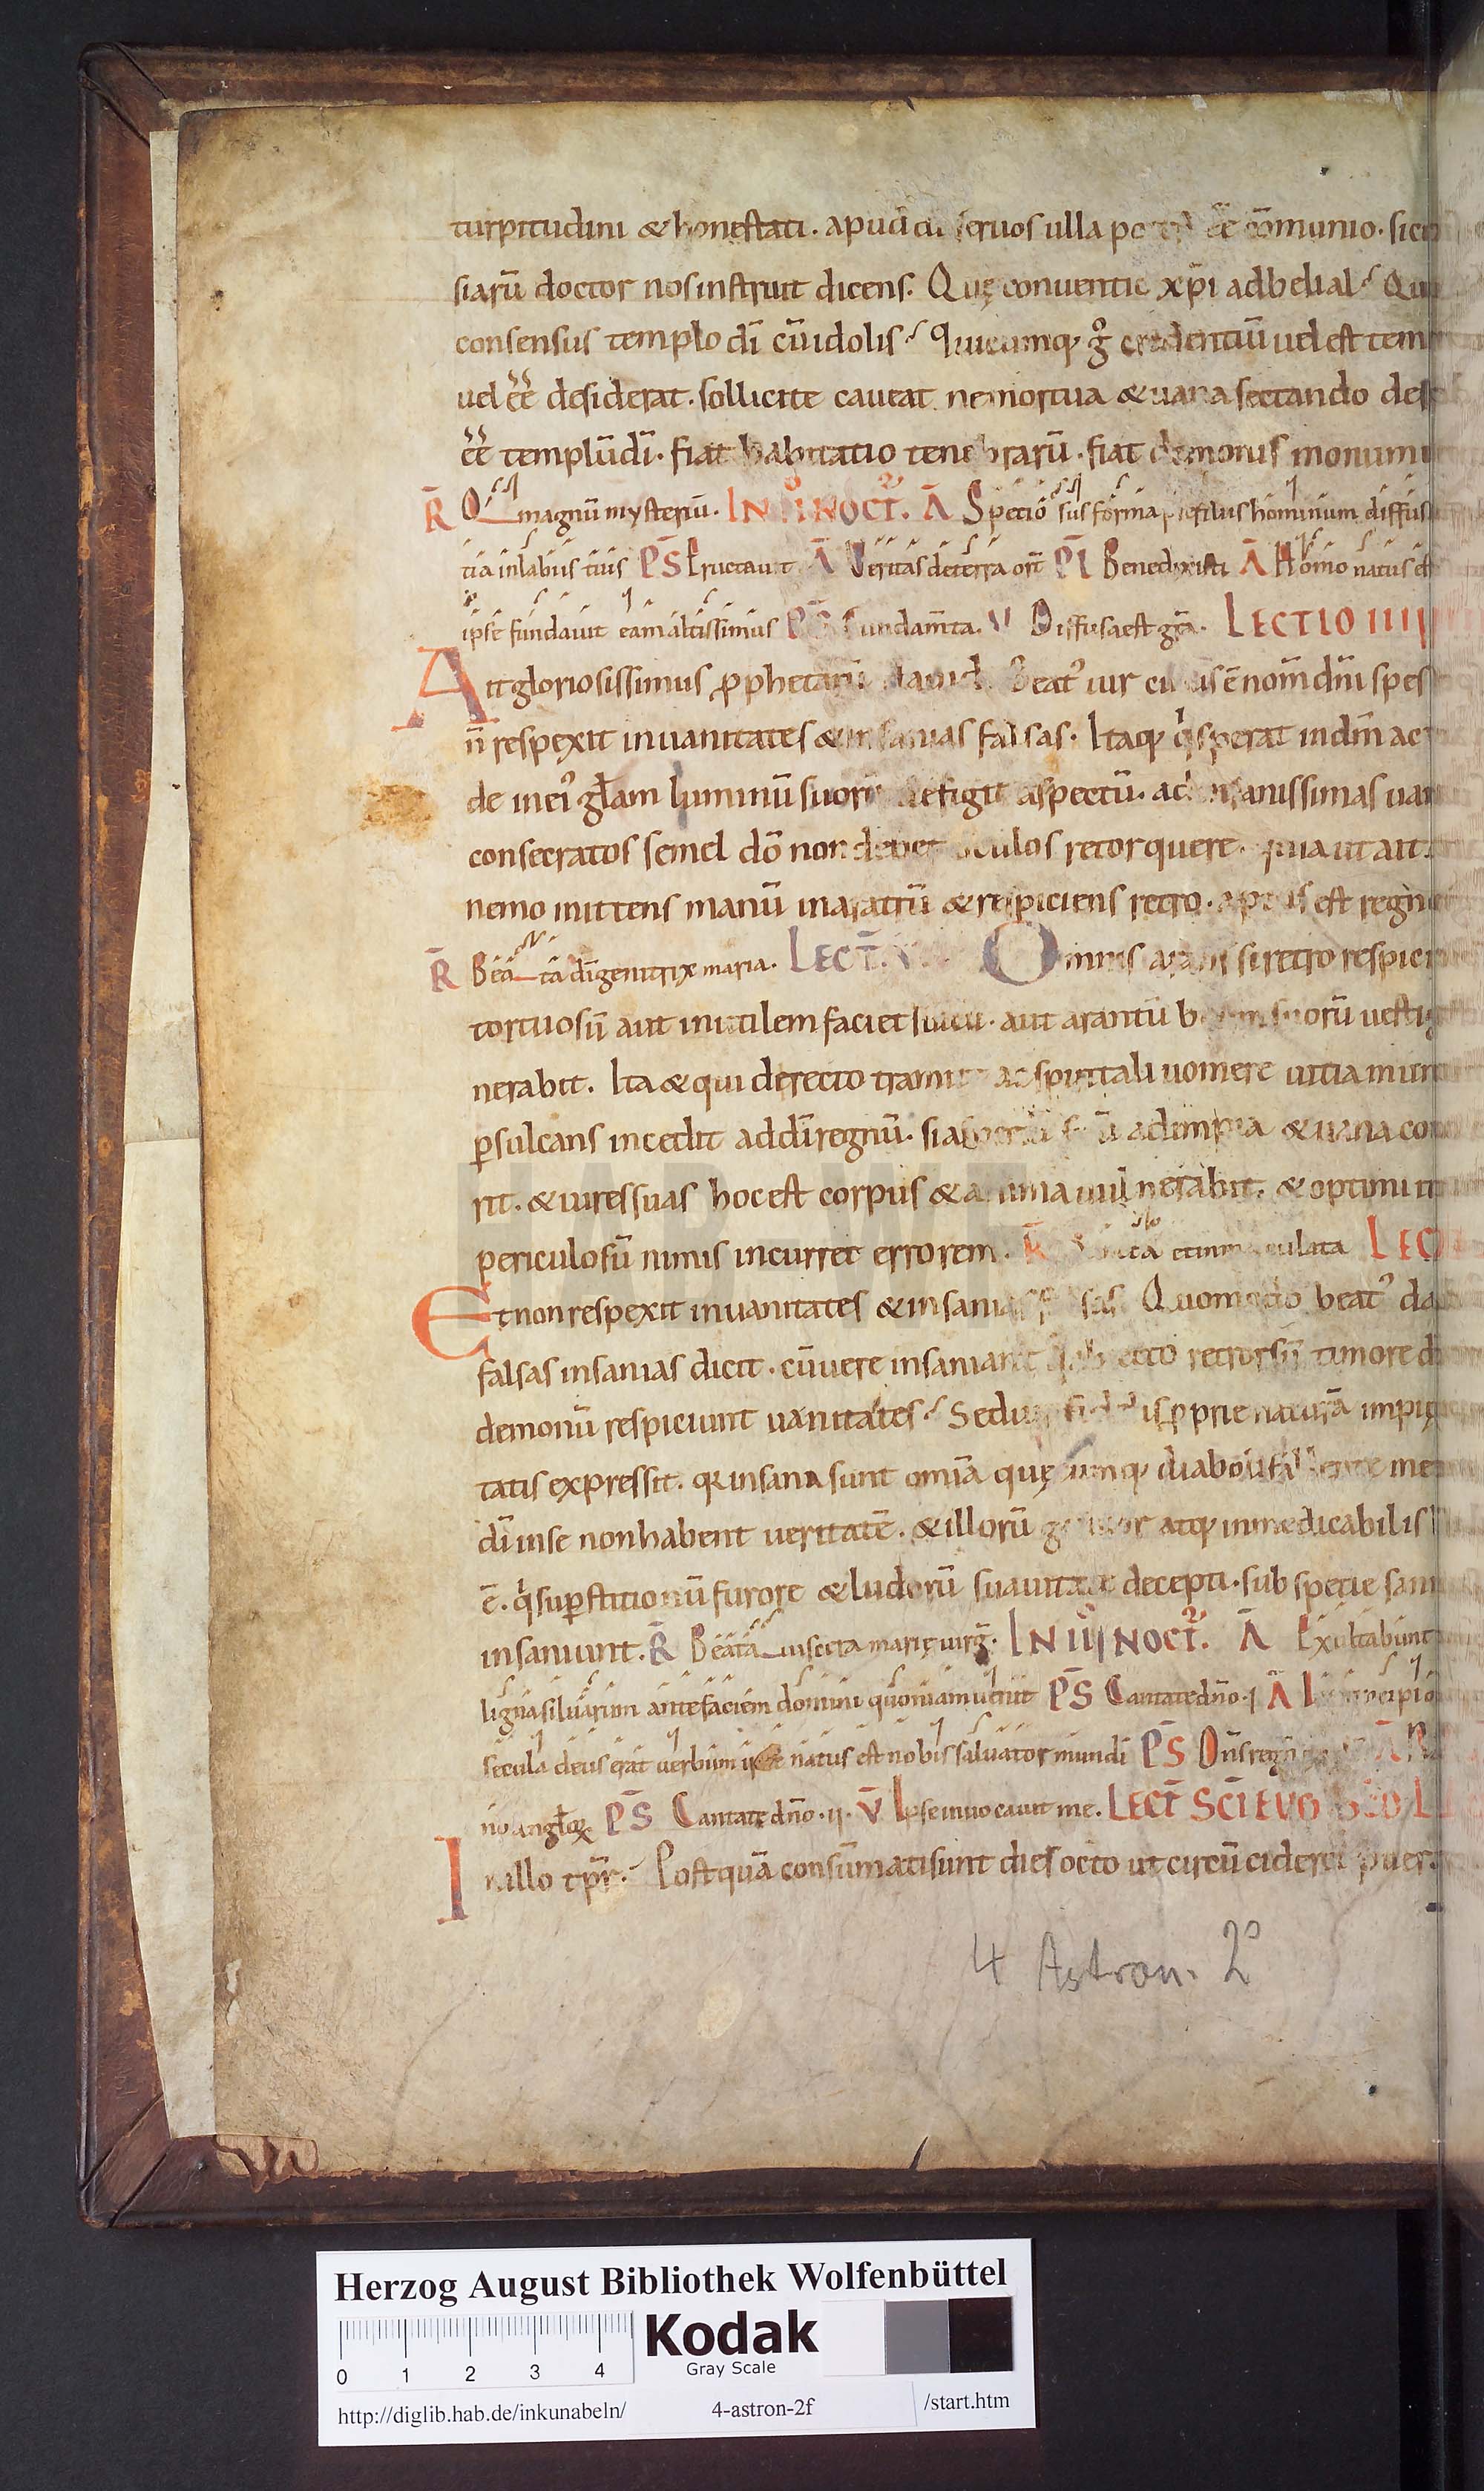 turpitudini & honestati. apud quos ulla poterit ee͂ cōmunio. sicut
siarū doctor nos instruit dicens. Quę conuentio xp̄i ad belial? Qui
consensus templo dī cū idolis? Quicumq; gͦ credentiū uel est tem
uel ee͂ desiderat. sollicite caueat. ne mortua & uana sectando des
ee͂ templū dī. fiat habitatio tenebrarū. fiat demonis monum
R̄ O magnū mysteriū. IN II NOCT̄. Ā Speciosus forma p̄ filiis hominum diffusa
tia in labiis tuis PS̄ Eructauit Ā Veritas de terra ort̄ PS̄ Benedixisti Ā Homo natus est
ipse fundauit eam altissimus PS̄ Fundam̄ta. V Diffusa est gr̄a. LECTIO IIII
Ait gloriosissimus ꝓphetarū dauid. Beatꝰ uir cuius ē nom̄ dn̄i spes
n̄ respexit in uanitates & insanias falsas. Itaq; qͥ sperat in dn̄m ac
de in eiꝰ gl̄am luminū suorū defigit aspectū. ad insanissimas uan
consecratos semel dō non debet oculos retorquere. quia ut ait.
nemo mittens manū in aratrū & respiciens retro. aptus est regno
R̄ Beata dī genitrix maria. LECT̄. V Omnis arans si retro respici
tortuosū aut inutilem faciet sulcū. aut arantū boum suorū uestig
nerabit. Ita & qui derecto tramite ac spiritali uomere uitia mun
ꝑsulcans incedit ad dī regnū. si aspectū suū ad impia & uana con
rit. & uires suas hoc est corpus & anima uulnerabit. & optimi it
periculosū nimis incurret errorem. R̄ Sancta et immaculata LEC
Et non respexit in uanitates & insanias falsas. Quomodo beatꝰ da
falsas insanias dicit. cū uere insaniant qͥ abiecto retrorsū timore d
demonū respiciunt uanitates? Sed ꝓprie naturā impię
tatis expressit. qꝛ insana sunt om̄ia quęcumq; diabolo fallente me
dī in se non habent veritatē. & illorū grauior atq; inmedicabilis
ē. qͥ suꝑstitionū furore & ludorū suauitate decepti. sub specie san
insaniunt. R̄ Beata uiscera marię uirḡ. IN III NOCT̄. Ā Exultabunt
ligna siluarum ante faciem domini quoniam uenit PS̄ Cantate dn̄o. i Ā In principio
secula deus erat uerbum ipse natus est nobis saluator mundi PS̄ Dn̄s regn̄ Ā
no anglōꝝ PS̄ Cantate dn̄o. ii. V̄ Ipse inuocauit me. LECT̄ SC̄I EVḠ SC̄D L
In illo tp̄r. Postquā consummati sunt dies octo ut circūcideret puer.
4 Astron. 2°
Herzog August Bibliothek Wolfenbüttel
Kodak
Gray Scale
0 1 2 3 4
http://diglib.hab.de/inkunabeln/ 4-astron-2f /start.htm